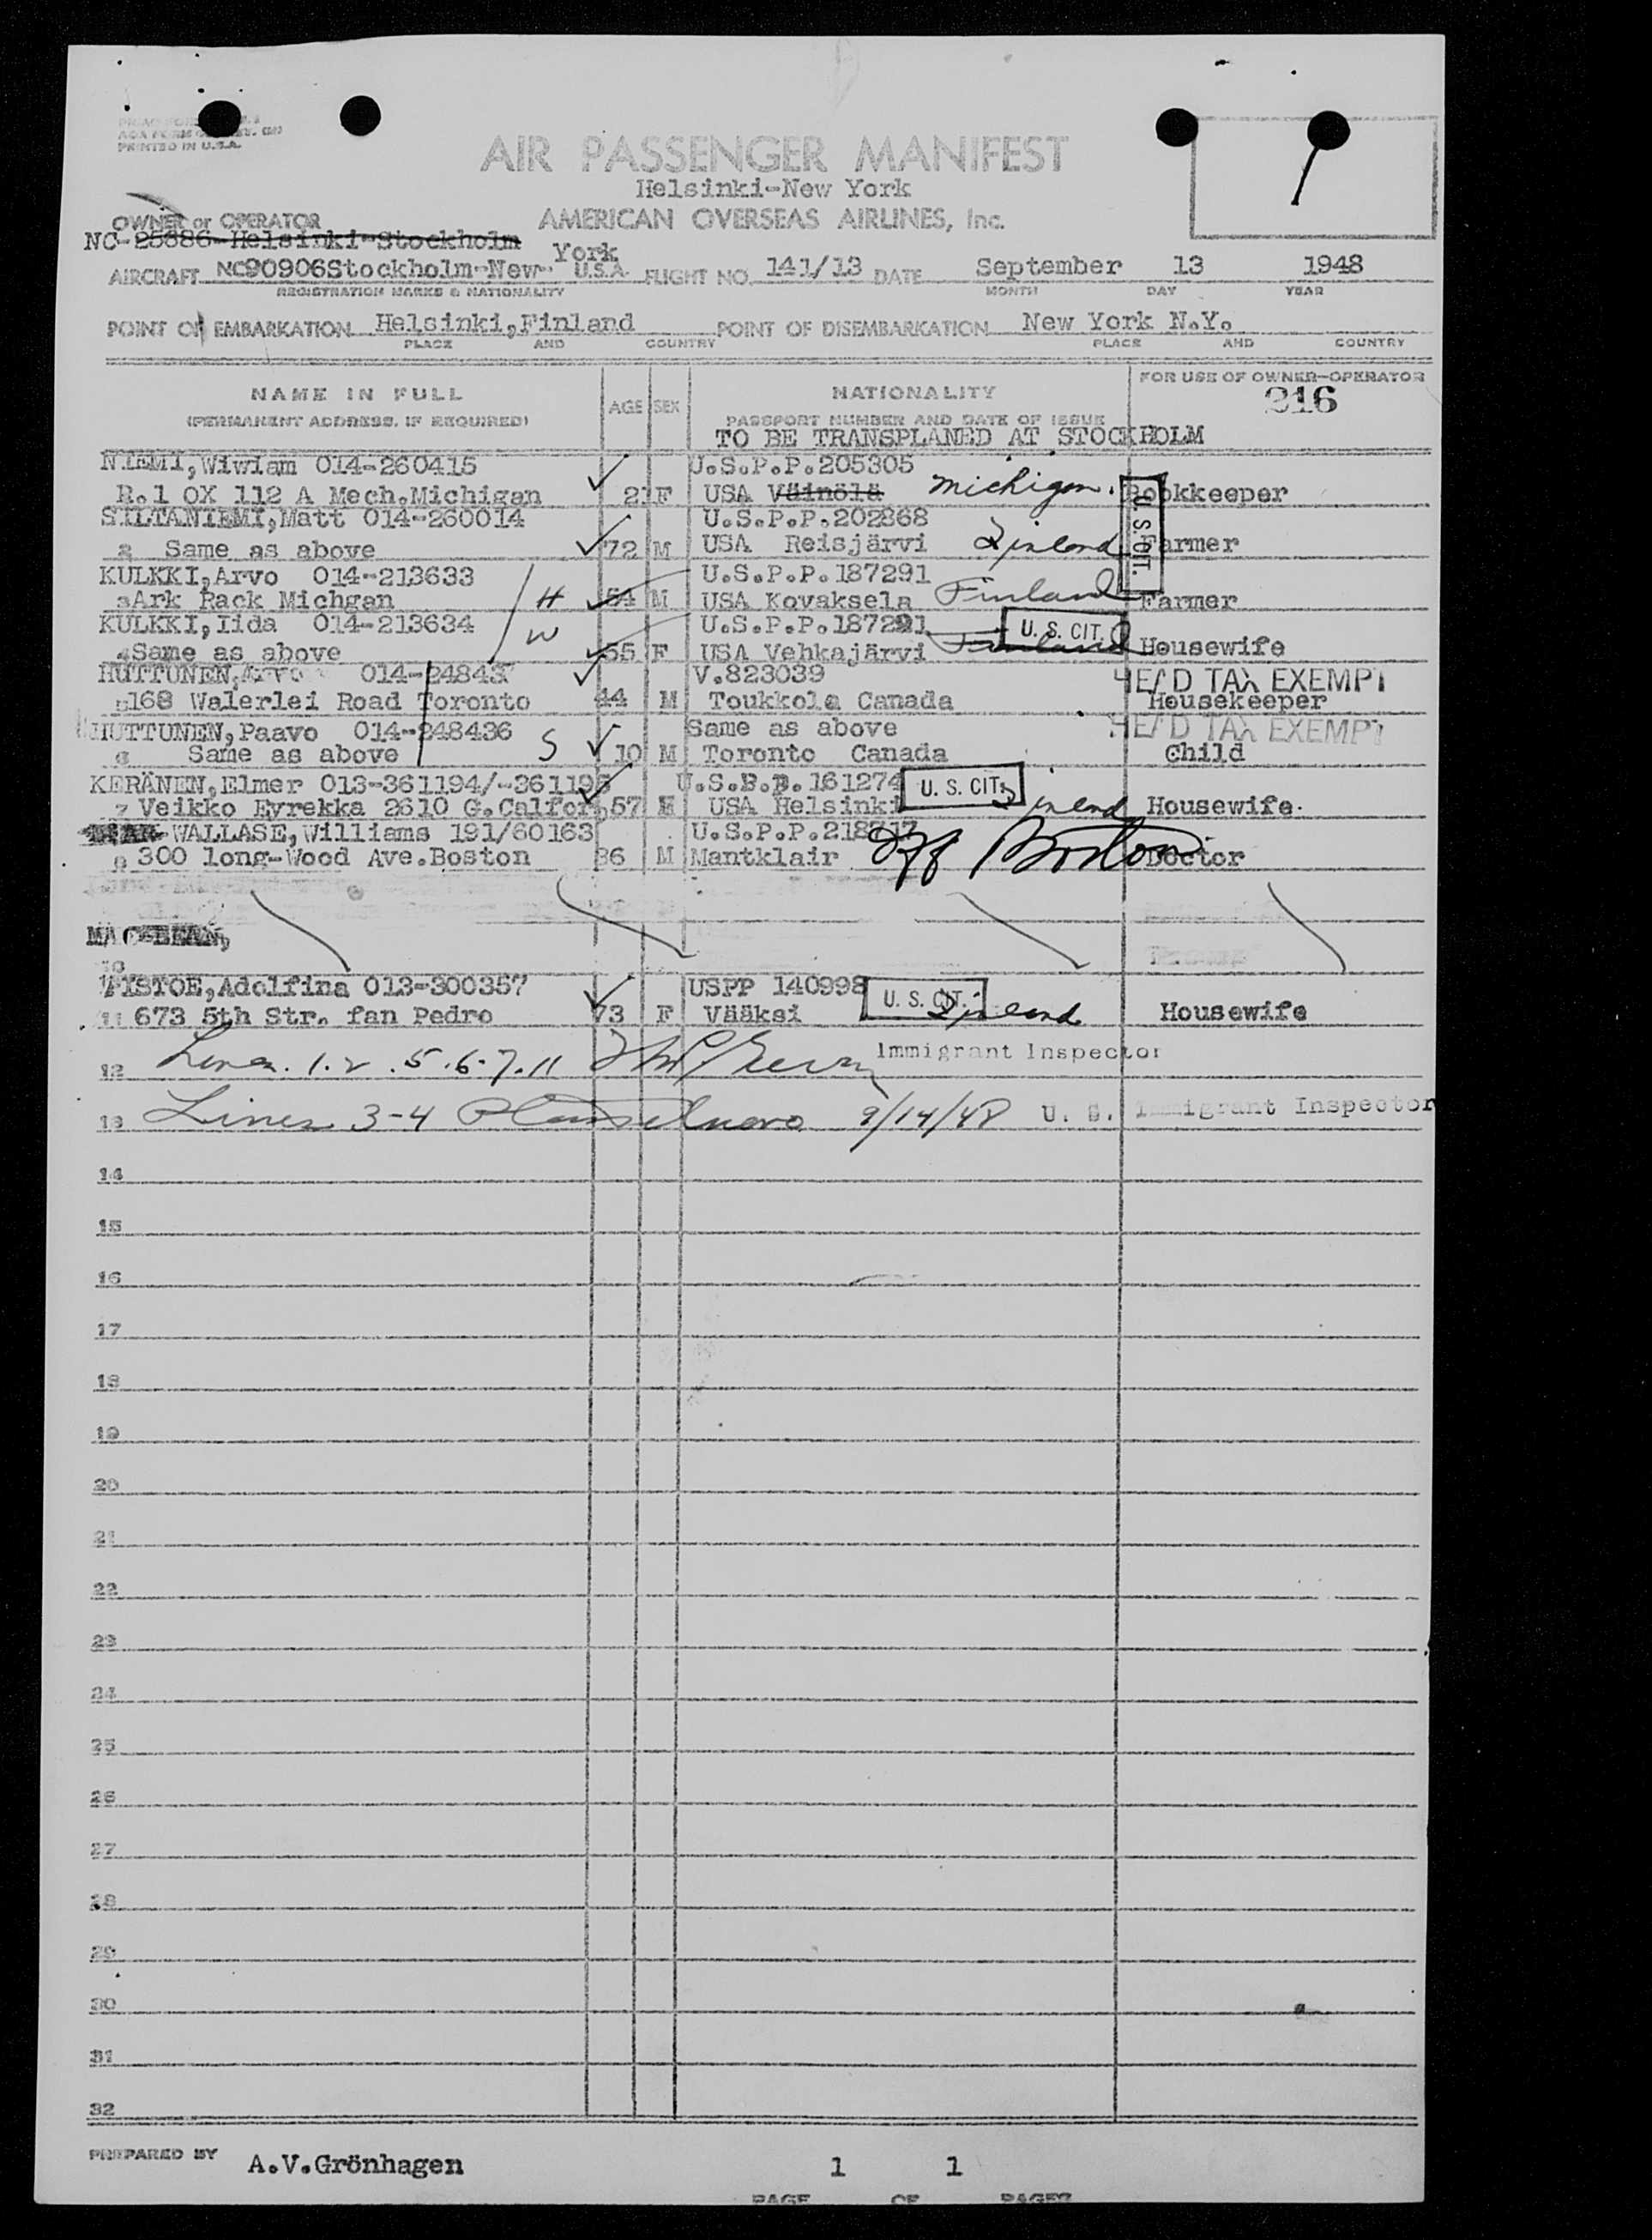 PRINTED IN U.S.A.
AIR PASSENGER MANIFEST
Helsinki-New York
OWNER or OPERATOR AMERICAN OVERSEAS AIRLINES, Inc.
NC-25886-Helsinki-Stockholm
York
AIRCRAFT NC90906Stockholm-New- U.S.A. FLIGHT NO. 141/13 DATE September 13 1948
REGISTRATION MARKS & NATIONALITY MONTH DAY YEAR
POINT OF EMBARKATION Helsinki,Finland POINT OF DISEMBARKATION New York N.Y.
PLACE AND COUNTRY PLACE AND COUNTRY
NAME IN FULL AGE SEX NATIONALITY FOR USE OF OWNER-OPERATOR
216
(PERMANENT ADDRESS, IF REQUIRED) PASSPORT NUMBER AND DATE OF ISSUE
TO BE TRANSPLANED AT STOCKHOLM
NIEMI,Wiwiam 014-260415 U.S.P.P.205305
R.1 OX 112 A Mech.Michigan 21 F USA Väinölä Michigan. Bookkeeper
U. S CIT.
SILTANIEMI,Matt 014-260014 U.S.P.P.202868
2 Same as above 72 M USA Reisjärvi Finland Farmer
KULKKI,Arvo 014-213633 U.S.P.P.187291
3Ark Rack Michgan H 54 M USA Kovaksela Finland Farmer
KULKKI,Iida 014-213634 W U.S.P.P.187291 U. S. CIT.
4Same as above 55 F USA Vehkajärvi Finland Housewife
HUTTUNEN,Arvo 014-24843 V.823039 HEAD TAX EXEMPT
5168 Walerlei Road Toronto 44 M Toukkola Canada Housekeeper
HUTTUNEN,Paavo 014-248436 Same as above HEAD TAX EXEMPT
6 Same as above S 10 M Toronto Canada Child
KERÄNEN,Elmer 013-361194/-361195 U.S.P.P.161274 U. S. CIT.
7 Veikko Eyrekka 2610 G.Calfor. 57 USA Helsinki Finland Housewife
WALLASE,Williams 191/60163 U.S.P.P.218717
8 300 long-Wood Ave.Boston 36 M Mantklair Off Boston Doctor
MAC-BEAN,
10
PISTOE,Adolfina 013-300357 USPP 140998 U. S. CIT.
11 673 5th Str. fan Pedro 73 F Vääksi Finland Housewife
12 Lines. 1.2 .5.6.7.11 Immigrant Inspector
13 Lines 3-4 9/14/48 U. S. Immigrant Inspector
14
15
16
17
18
19
20
21
22
23
24
25
26
27
28
29
30
31
32
PREPARED BY A.V.Grönhagen 1 1
PAGE OF PAGES